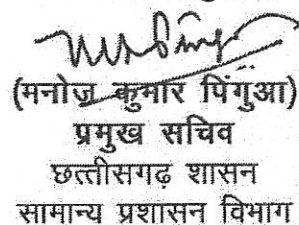 (मनोज कुमार पिंगुआ)
प्रमुख सचिव
छत्तीसगढ़ शासन
सामान्य प्रशासन विभाग